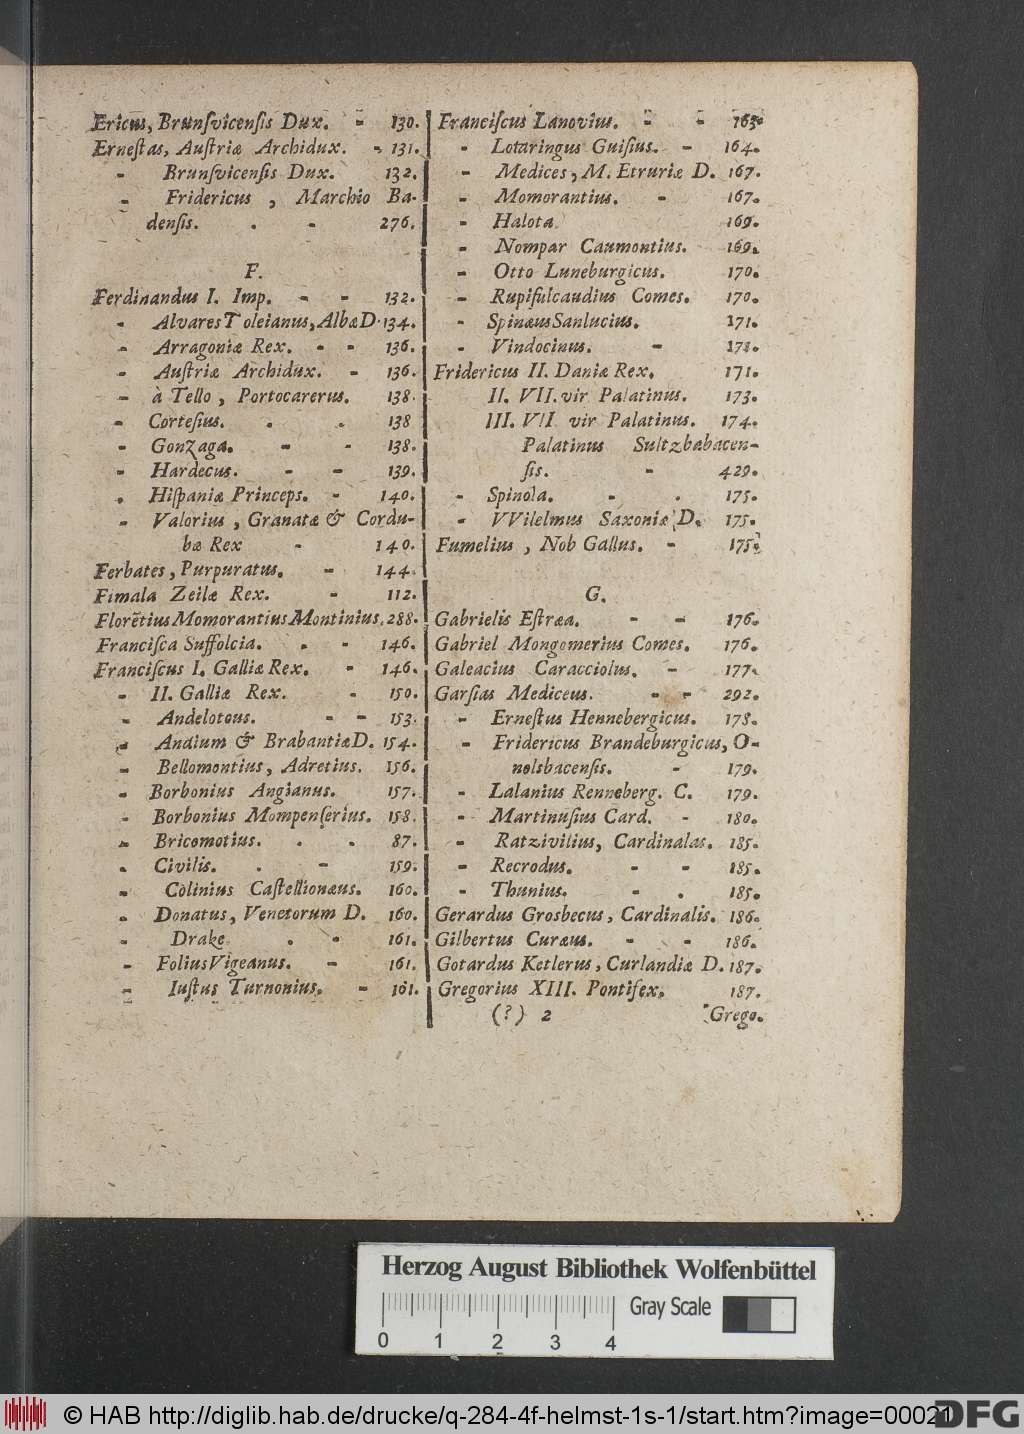 Ericus, Brunſvicenſis Dux. - 130.
Erneſtas, Auſtriæ Archidux. - 131.
- Brunſvicenſis Dux. 132.
- Fridericus , Marchio Ba-
denſis. . - 276.
F.
Ferdinandus I. Imp. - - 132.
- Alvares Toleianus, Albæ D. 134.
- Arragoniæ Rex. - - 136.
- Auſtriæ Archidux. - 136.
- à Tello , Portocarerus. 138.
- Corteſius. . . 138
- Gonzaga. - - 138.
- Hardecus. - - 139.
. Hiſpaniæ Princeps. - 140.
- Valorius , Granatæ & Cordu-
bæ Rex - 140.
Ferbates, Purpuratus. - 144.
Fimala Zeilæ Rex. - 112.
Florẽtius Momorantius Montinius, 288.
Franciſca Suffolcia. . - 146.
Franciſcus I. Galliæ Rex. - 146.
- II. Galliæ Rex. - 150.
- Andelotous. - - 153.
- Andium & Brabantiæ D. 154.
- Bellomontius, Adretius. 156.
- Borbonius Angianus. 157.
- Borbonius Mompenſerius. 158.
- Bricomotius. . . 87.
. Civilis. . - 159.
- Colinius Caſtellionæus. 160.
- Donatus, Venetorum D. 160.
- Drake. . - 161.
- Folius Vigeanus. - 161.
- Iuſtus Turnonius. - 161.
Franciſcus Lanovius. - - 163.
- Lotaringus Guiſius. - 164.
- Medices, M. Etruriæ D. 167.
- Momorantius. - 167.
- Halota 169.
- Nompar Caumontius. 169.
- Otto Luneburgicus. 170.
- Rupifulcaudius Comes. 170.
- Spinæus Sanlucius. 171.
- Vindocinus. - 171.
Fridericus II. Daniæ Rex. 171.
II. VII. vir Palatinus. 173.
III. VII vir Palatinus. 174.
Palatinus Sultzbabacen-
ſis. - 429.
- Spinola. - . 175.
- VVilelmus Saxoniæ D. 175.
Fumelius , Nob Gallus. - 175.
G.
Gabrielis Eſtræa. - - 176.
Gabriel Mongomerius Comes. 176.
Galeacius Caracciolus. - 177.
Garſias Mediceus. - - 292.
- Erneſtus Hennebergicus. 178.
- Fridericus Brandeburgicus, O-
nolsbacenſis. - 179.
- Lalanius Renneberg. C. 179.
- Martinuſius Card. - 180.
- Ratzivilius, Cardinalas. 185.
- Recrodus. - - 185.
- Thunius. - . 185.
Gerardus Grosbecus, Cardinalis. 186.
Gilbertus Curæus. - - 186.
Gotardus Ketlerus, Curlandiæ D. 187.
Gregorius XIII. Pontifex. 187.
(?) 2 Grego.
Herzog August Bibliothek Wolfenbüttel
Gray Scale
0 1 2 3 4
© HAB http://diglib.hab.de/drucke/q-284-4f-helmst-1s-1/start.htm?image=00021
DFG